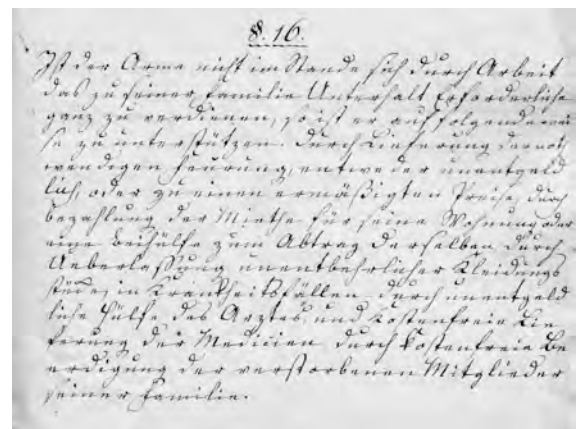 §. 16.
Ist der Arme nicht im Stande sich durch Arbeit
das zu seiner Familie Unterhalt Erforderliche
ganz zu verdienen, so ist er auf folgende wei
se zu unterstützen. Durch Lieferung der not
wendigen Feurung, entweder unentgeld
lich, oder zu einen ermäßigten Preise, durch
bezahlung der Miethe für seine Wohnung oder
eine Beihülfe zum Abtrag derselben durch
Ueberlaßung unentbehrlicher Kleidungs
stücke, in Krankheitsfällen, durch unentgeld
liche Hülfe des Arztes, und kostenfreie Lie
ferung der Medicien durch kostenfreie Be
erdigung der verstorbenen Mitglieder
seiner Familie.